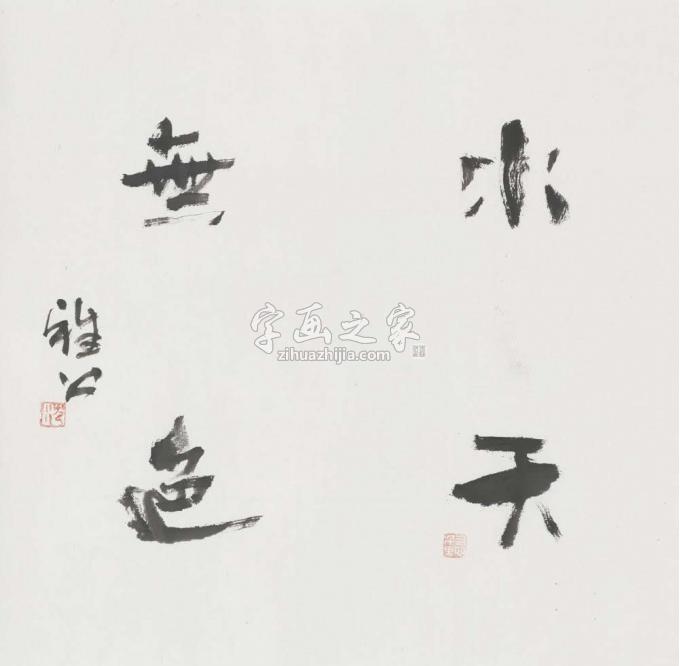 水天
無色
雅公
字画之家
zihuazhijia.com